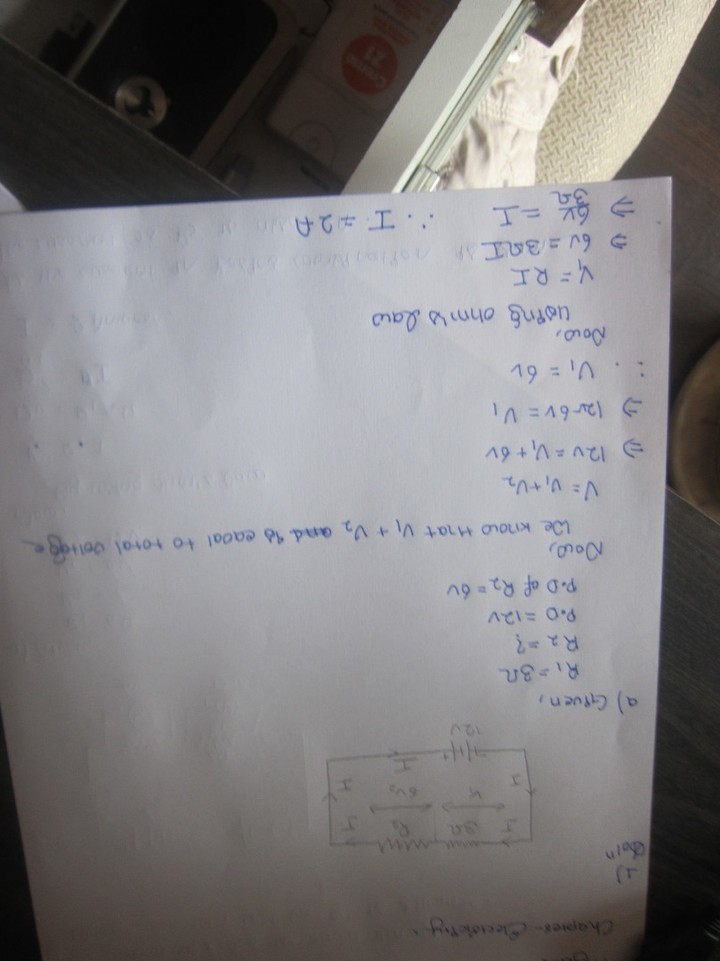 Chapter- Electricity.
1)
Solⁿ
3Ω R2
I I
V 6V
I I
I
12V
a) Given,
R1 = 3Ω
R2 = ?
P.D = 12V
P.D of R2 = 6V
Now,
We know that V1 + V2 and is equal to total voltage
V = V1 + V2
⇒ 12V = V1 + 6V
⇒ 12V-6V = V1
∴ V1 = 6V
Now,
Using ohm's law
V1 = RI
⇒ 6V = 3ΩI
⇒ 6V/3Ω = I ∴ I = 2A